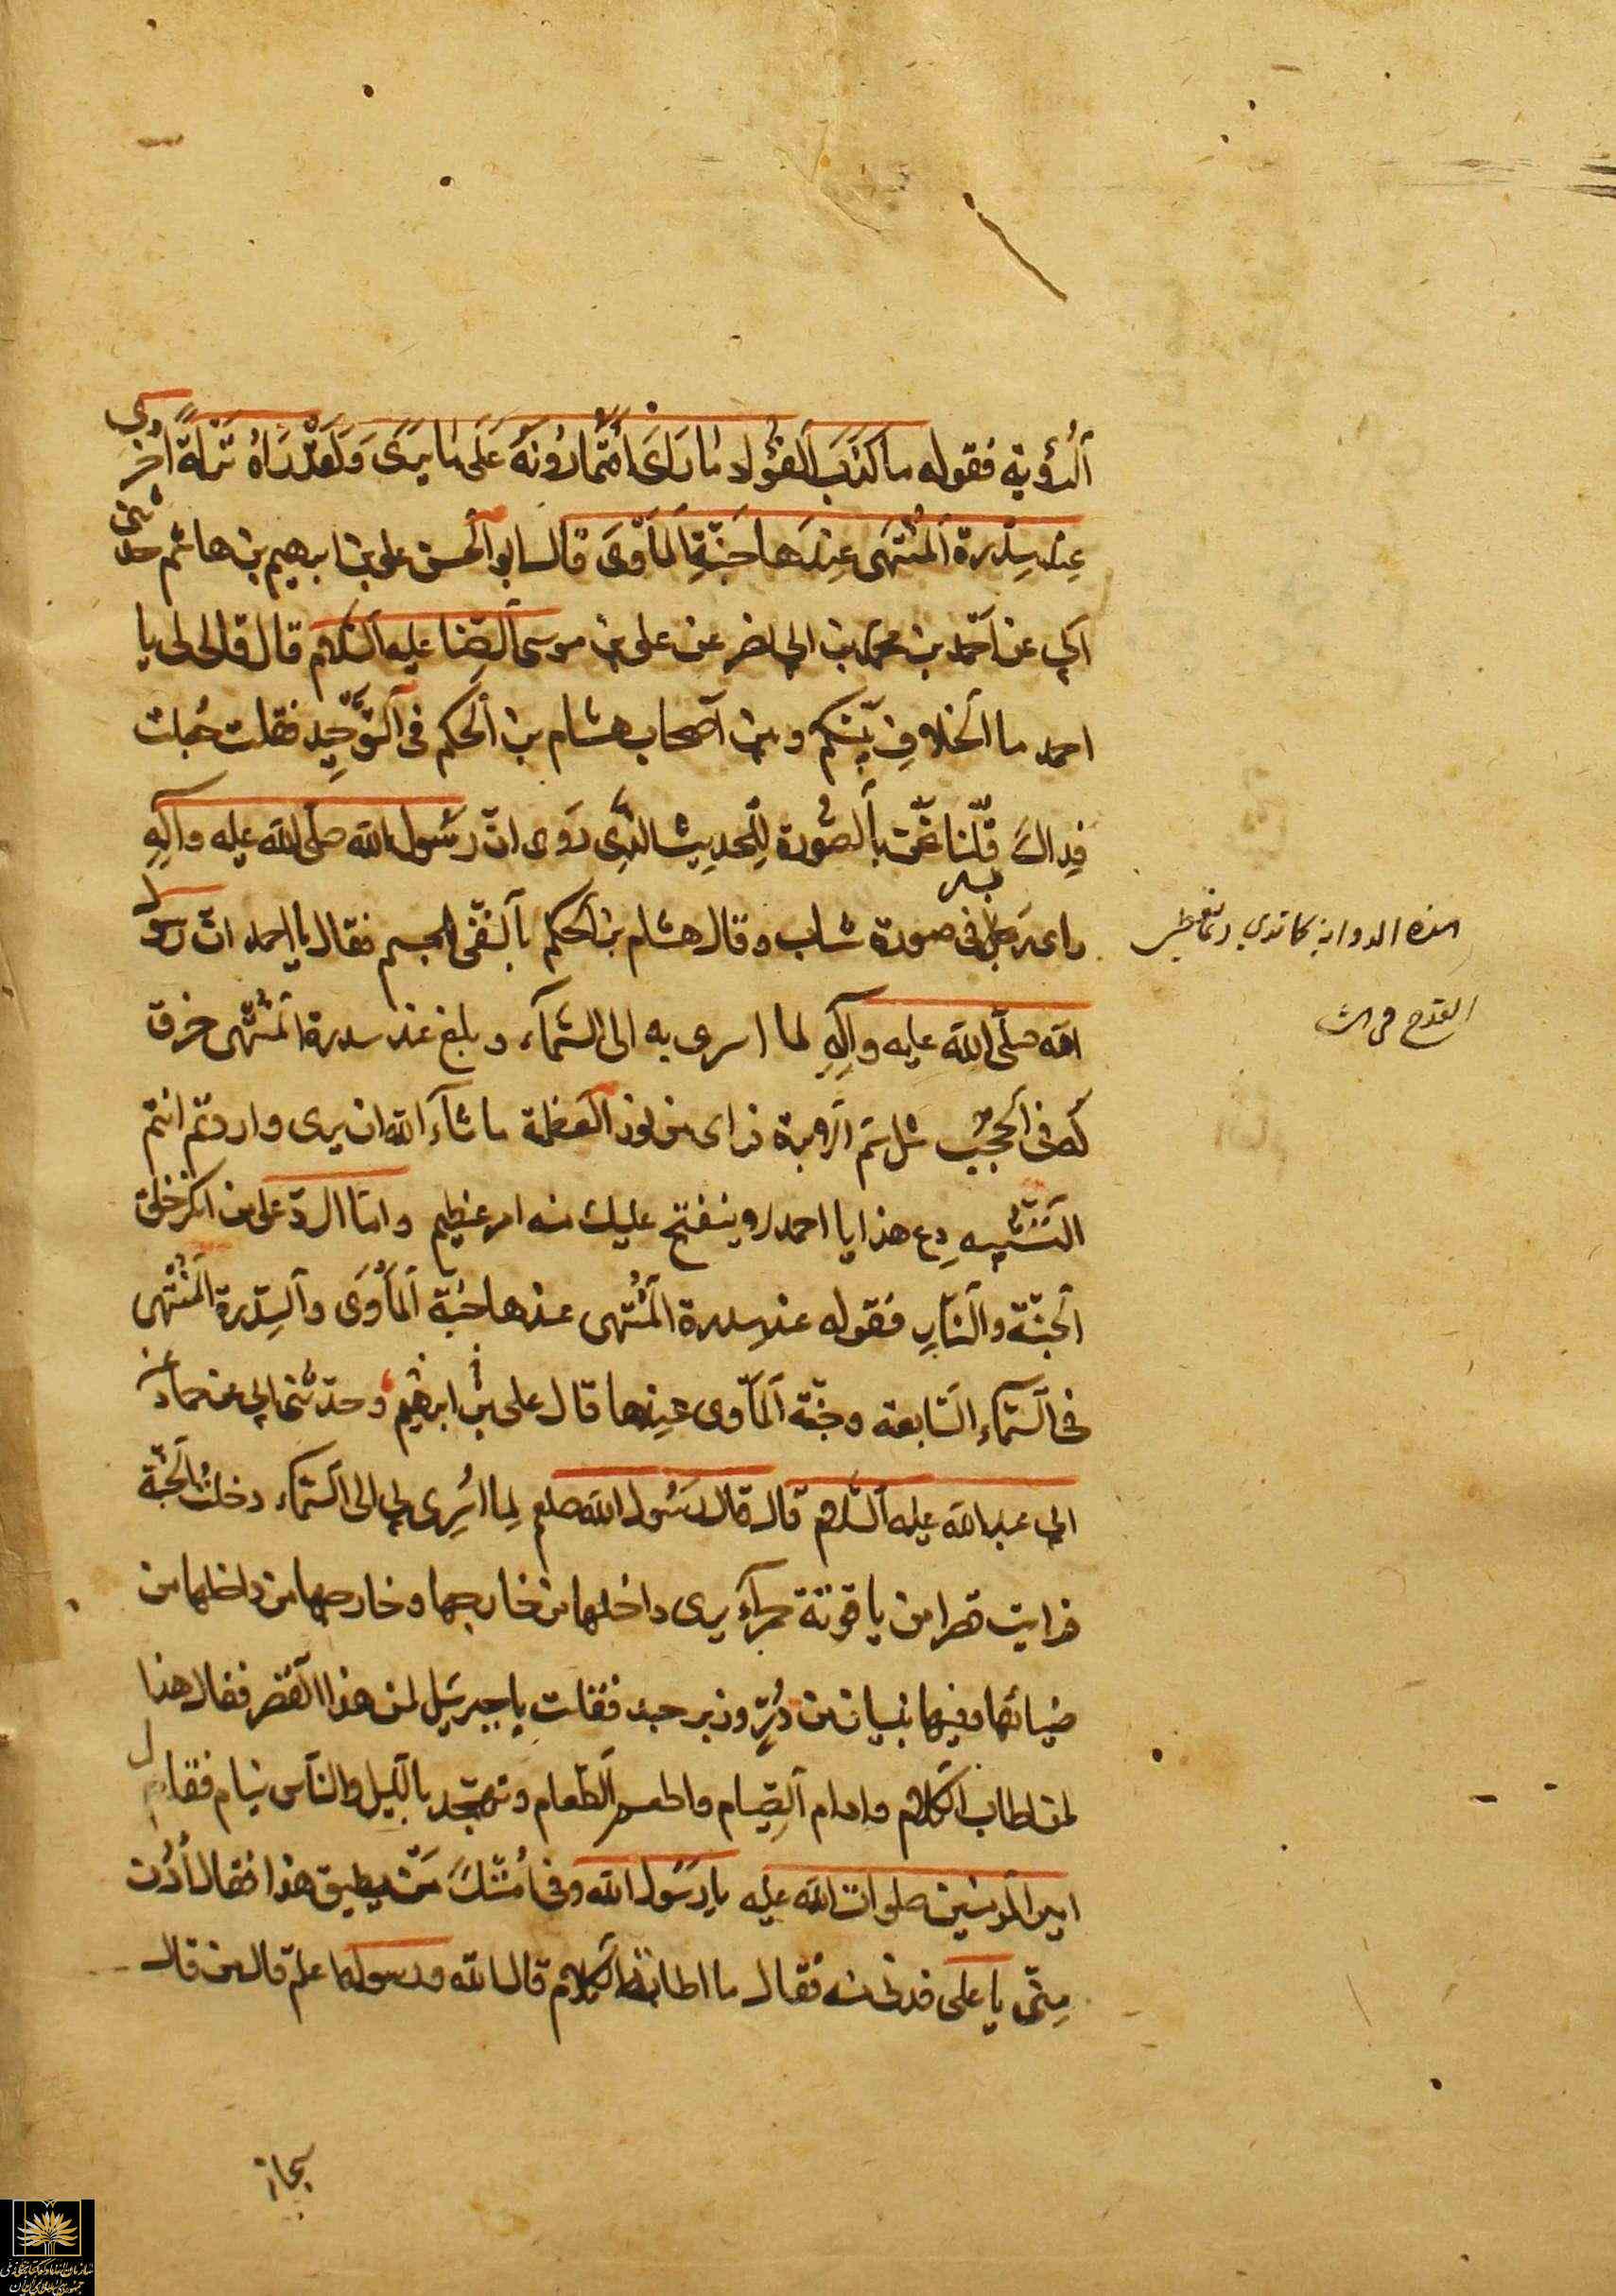 الرُّؤية فقوله ما كَذَبَ الفُؤادُ ما رَاَى اَفَتُمارُونَهُ عَلى ما يَرَى وَلَقَدْ رَاهُ نَزْلَةً اُخْرى
عِندَ سِدْرَةِ المُنْتَهى عِندَها جَنَّةُ المَأْوَى قال ابو الحسن على بن ابرهيم بن هاشم حدثنى
ابي عن احمد بن محمد بن ابي نضر عن على بن موسى الرضا عليه السلام قال قال لى يا
احمد ما الخلاف بينكم وبين اصحاب هشام بن الحكم فى التوحيد فقلت جُعلت
فداك قلنا نحن بالصّورة للحديث الذى روى ان رسول الله صلى الله عليه وآله
راى ربه فى صورة شاب وقال هشام بن الحكم بالنفى للجسم فقال يا احمد ان رسول
الله صلّى الله عليه وآله لما اسرى به الى السمآء وبلغ عند سدرة المنتهى خرق
له فى الحجب مثل سم الابرة فراى من نور العظمة ما شآء الله ان يرى واردتم انتم
التشبيه دع هذا يا احمد لا ينفتح عليك منه امر عظيم واما الردّ على من انكر خلق
الجنّة والنّار فقوله عند سدرة المنتهى عندها جنّة المأوَى والسِّدرة المنتهى
فى السّمآء السّابعة وجنّة المأوى عندها قال على بن ابرهيم وحدّثنى ابي عن حماد عن
ابي عبد الله عليه السّلام قال قال رسُول الله صلعم لما اُسرِى بي الى السّمآء دخلتُ الجنّة
فرايت قصرا من ياقوتة حمرآء يرى داخلها من خارجها وخارجها من داخلها من
ضيائها وفيها بنيان من دُرّ وزبرجد فقلت يا جبرئيل لمن هذا القصر فقال هذا
لمن اطاب الكلام وادام الصّيام واطعم الطّعام وتهجّد بالّليل والنّاس نيام فقال
امير المومنين صلوات الله عليه يا رسول الله وفى اُمّتك مَن يطيق هذا فقال اُدْنُ
مِنّى يا على فدنى منه فقال ما اطابة الكلام قال الله ورسوله اعلم قال من قال
هذه الرواية كما ترى
القدح فى
سبحان
سازمان اسناد و کتابخانه ملی
جمهوری اسلامی ایران